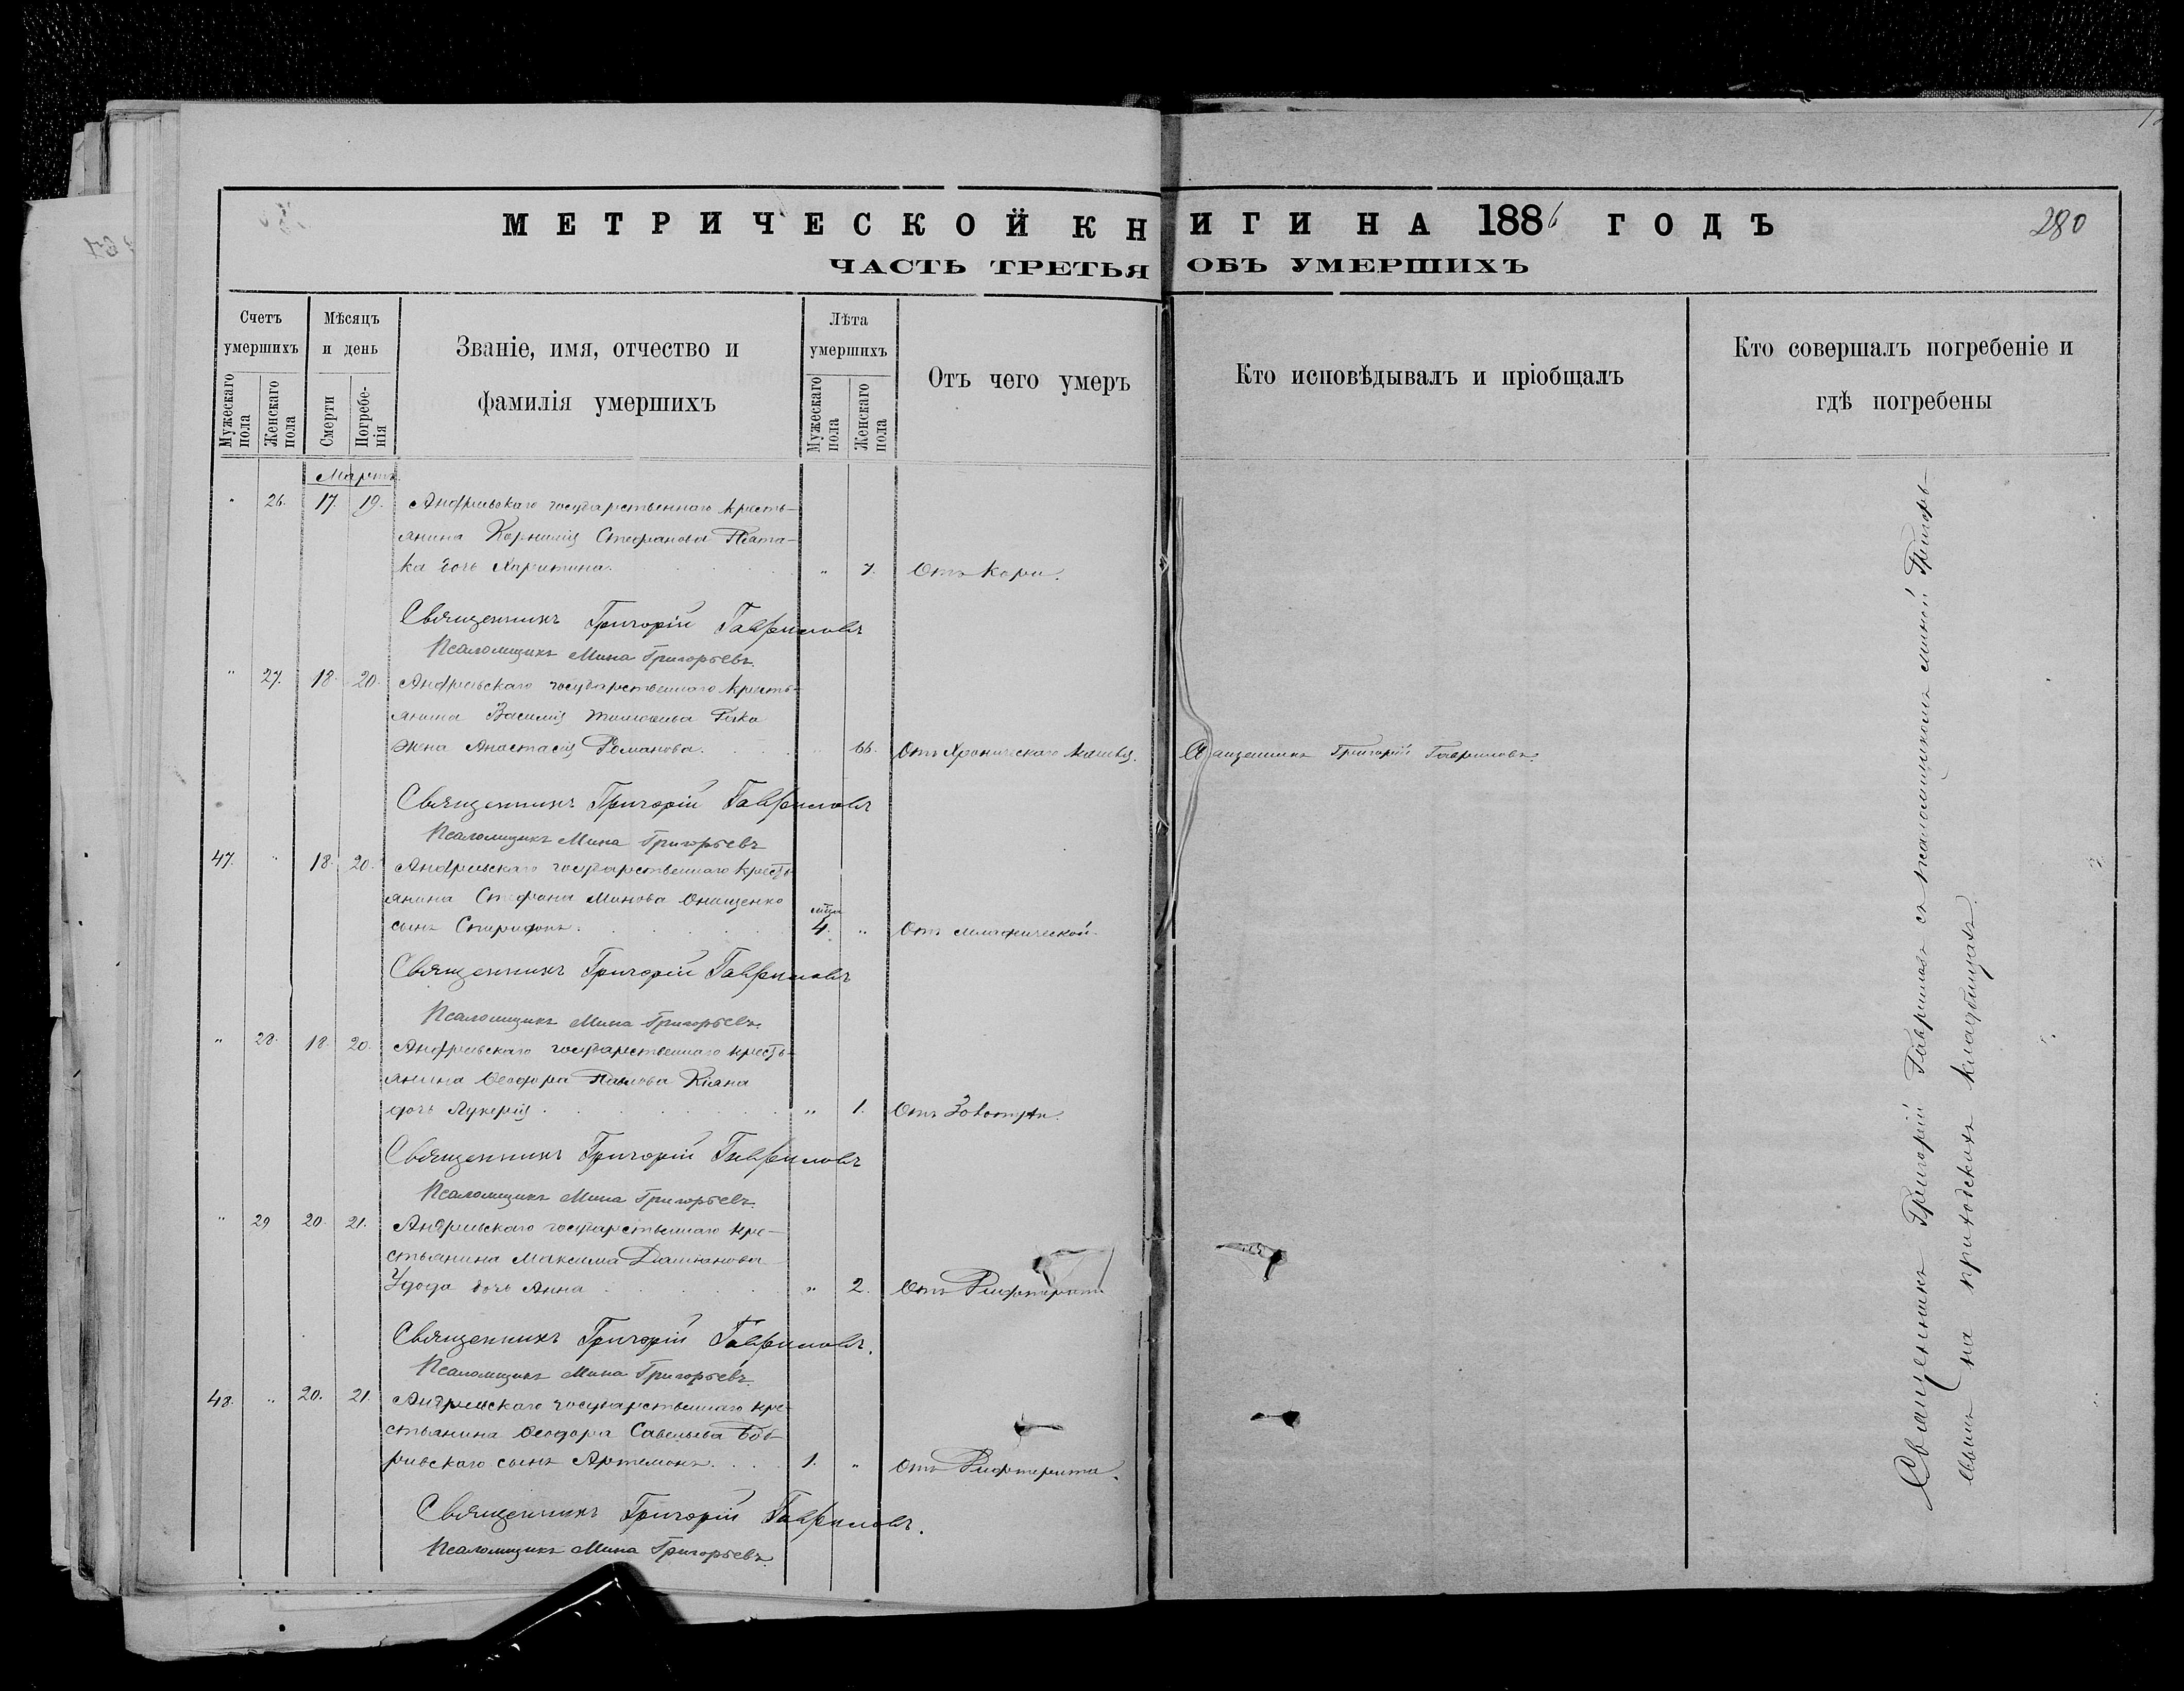 МЕТРИЧЕСКОЙ КНИГИ НА 1886 ГОДЪ
280
ЧАСТЬ ТРЕТЬЯ ОБЪ УМЕРШИХЪ
Счетъ умершихъ
Мужескаго пола
Женскаго пола
Мѣсяцъ и день
Смерти
Погребенія
Званіе, имя, отчество и фамилія умершихъ
Лѣта умершихъ
Мужескаго пола
Женскаго пола
Отъ чего умеръ
Кто исповѣдывалъ и пріобщалъ
Кто совершалъ погребеніе и гдѣ погребены
Мартъ
" 26. 17. 19. Андреевскаго государственнаго кресть-
янина Корнилія Стефанова
ка дочь Харитина. " 7. Отъ кори.
Священникъ Григорій Гавриловъ
Псаломщикъ Мина Григорьевъ.
" 27. 18. 20. Андреевскаго государственнаго кресть-
янина Василія
жена Анастасія Романова. 66. Отъ Хроническаго кашля. Священникъ Григорій Гавриловъ.
Священникъ Григорій Гавриловъ
Псаломщикъ Мина Григорьевъ
47. " 18. 20. Андреевскаго государственнаго кресть-
янина Стефана Минова Онищенко
сынъ Спиридонъ. 4. " Отъ
Священникъ Григорій Гавриловъ
Псаломщикъ Мина Григорьевъ.
" 28. 18. 20. Андреевскаго государственнаго кресть-
янина Ѳеодора Павлова Кіяна
дочь Лукерія. " 1. Отъ Золотухи.
Священникъ Григорій Гавриловъ
Псаломщикъ Мина Григорьевъ
" 29 20. 21. Андреевскаго государственнаго кре-
стьянина Максима Даміанова
Удода дочь Анна " 2. Отъ Дифтерита
Священникъ Григорій Гавриловъ.
Псаломщикъ Мина Григорьевъ.
48. " 20. 21. Андреевскаго государственнаго кре-
стьянина Ѳеодора Савельева Боб-
ривскаго сынъ Артемонъ. 1. " Отъ Дифтерита.
Священникъ Григорій Гавриловъ.
Псаломщикъ Мина Григорьевъ.
Священникъ Григорій Гавриловъ съ псаломщикомъ Миной Григорь-
евымъ на приходскихъ кладбищахъ.